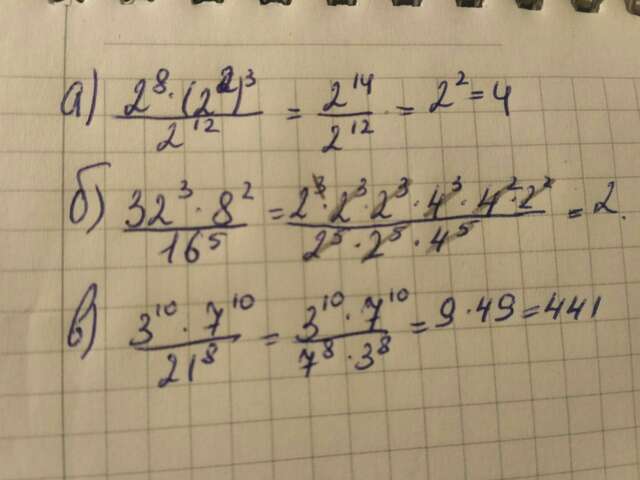 а) 2⁸·(2²)³/2¹² = 2¹⁴/2¹² = 2² = 4
б) 32³·8²/16⁵ = 2³·2³·2³·4³·4²·2²/2⁵·2⁵·4⁵ = 2.
в) 3¹⁰·7¹⁰/21⁸ = 3¹⁰·7¹⁰/7⁸·3⁸ = 9·49 = 441